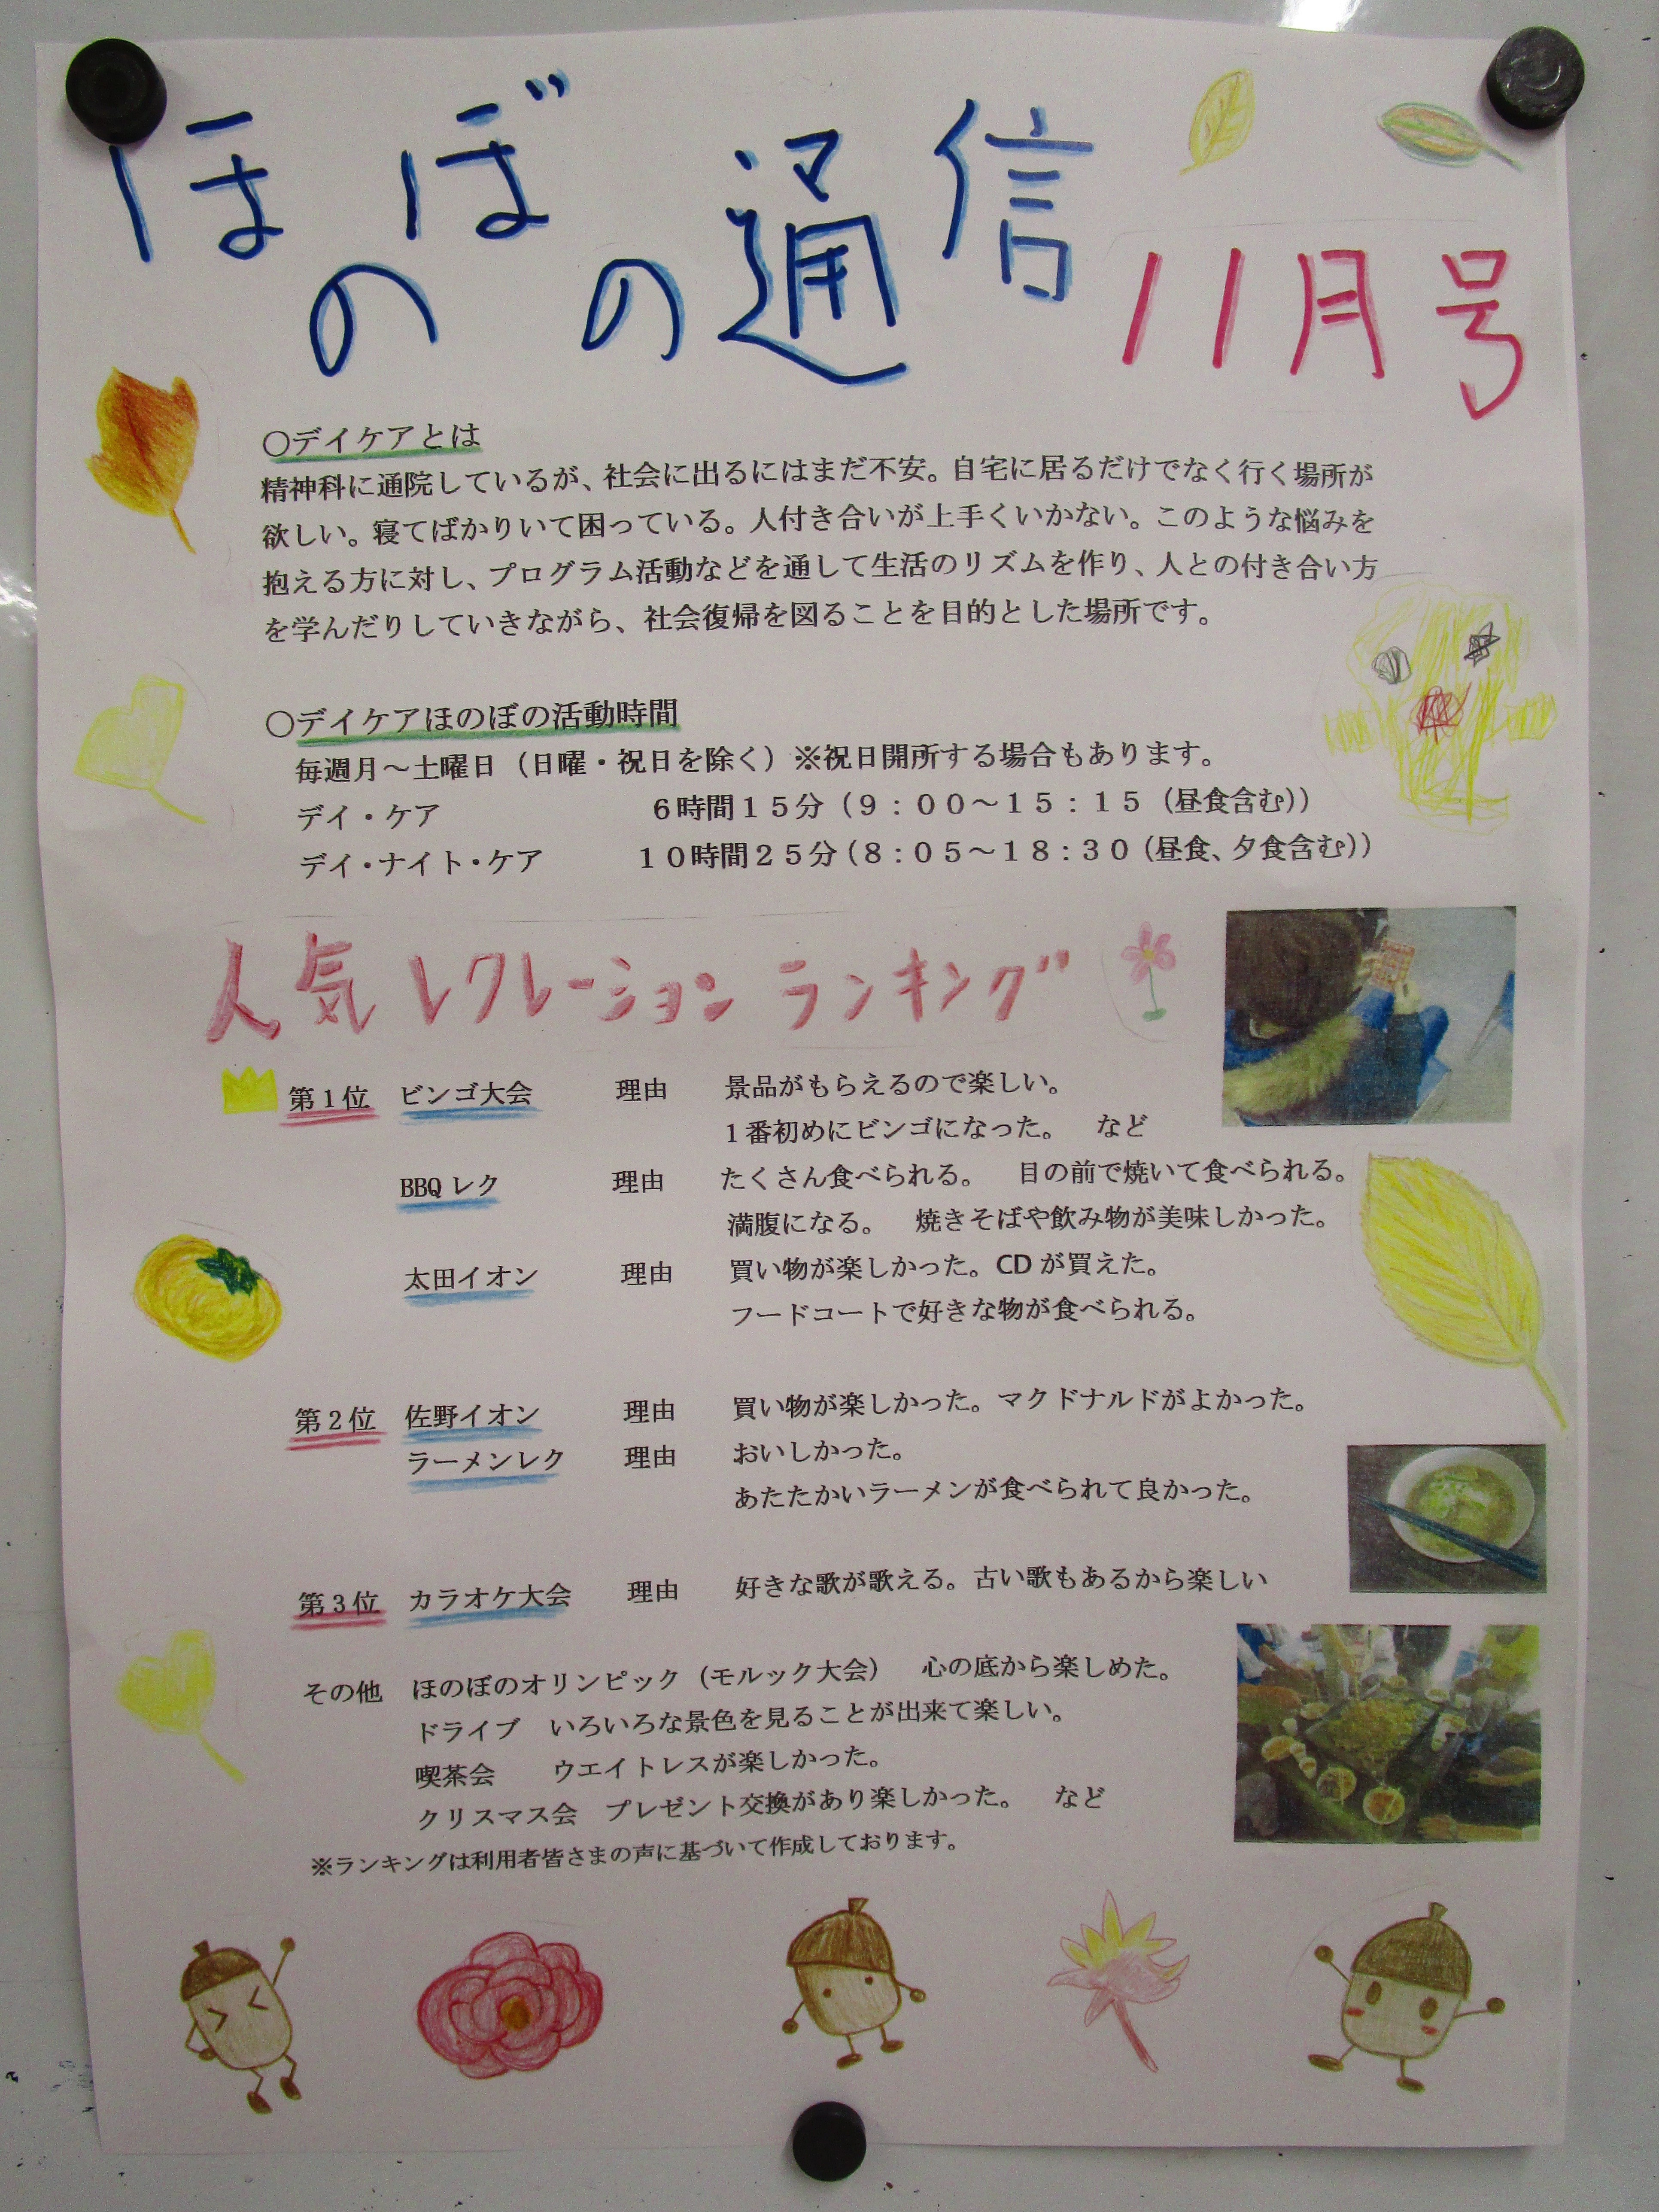 ほのぼの通信 11月号
○デイケアとは
精神科に通院しているが、社会に出るにはまだ不安。自宅に居るだけでなく行く場所が
欲しい。寝てばかりいて困っている。人付き合いが上手くいかない。このような悩みを
抱える方に対し、プログラム活動などを通して生活のリズムを作り、人との付き合い方
を学んだりしていきながら、社会復帰を図ることを目的とした場所です。
○デイケアほのぼの活動時間
毎週月～土曜日（日曜・祝日を除く）※祝日開所する場合もあります。
デイ・ケア 6時間15分（9：00～15：15（昼食含む））
デイ・ナイト・ケア 10時間25分（8：05～18：30（昼食、夕食含む））
人気レクレーションランキング
第1位 ビンゴ大会 理由 景品がもらえるので楽しい。
1番初めにビンゴになった。 など
BBQレク 理由 たくさん食べられる。 目の前で焼いて食べられる。
満腹になる。 焼きそばや飲み物が美味しかった。
太田イオン 理由 買い物が楽しかった。CDが買えた。
フードコートで好きな物が食べられる。
第2位 佐野イオン 理由 買い物が楽しかった。マクドナルドがよかった。
ラーメンレク 理由 おいしかった。
あたたかいラーメンが食べられて良かった。
第3位 カラオケ大会 理由 好きな歌が歌える。古い歌もあるから楽しい
その他 ほのぼのオリンピック（モルック大会） 心の底から楽しめた。
ドライブ いろいろな景色を見ることが出来て楽しい。
喫茶会 ウエイトレスが楽しかった。
クリスマス会 プレゼント交換があり楽しかった。 など
※ランキングは利用者皆さまの声に基づいて作成しております。